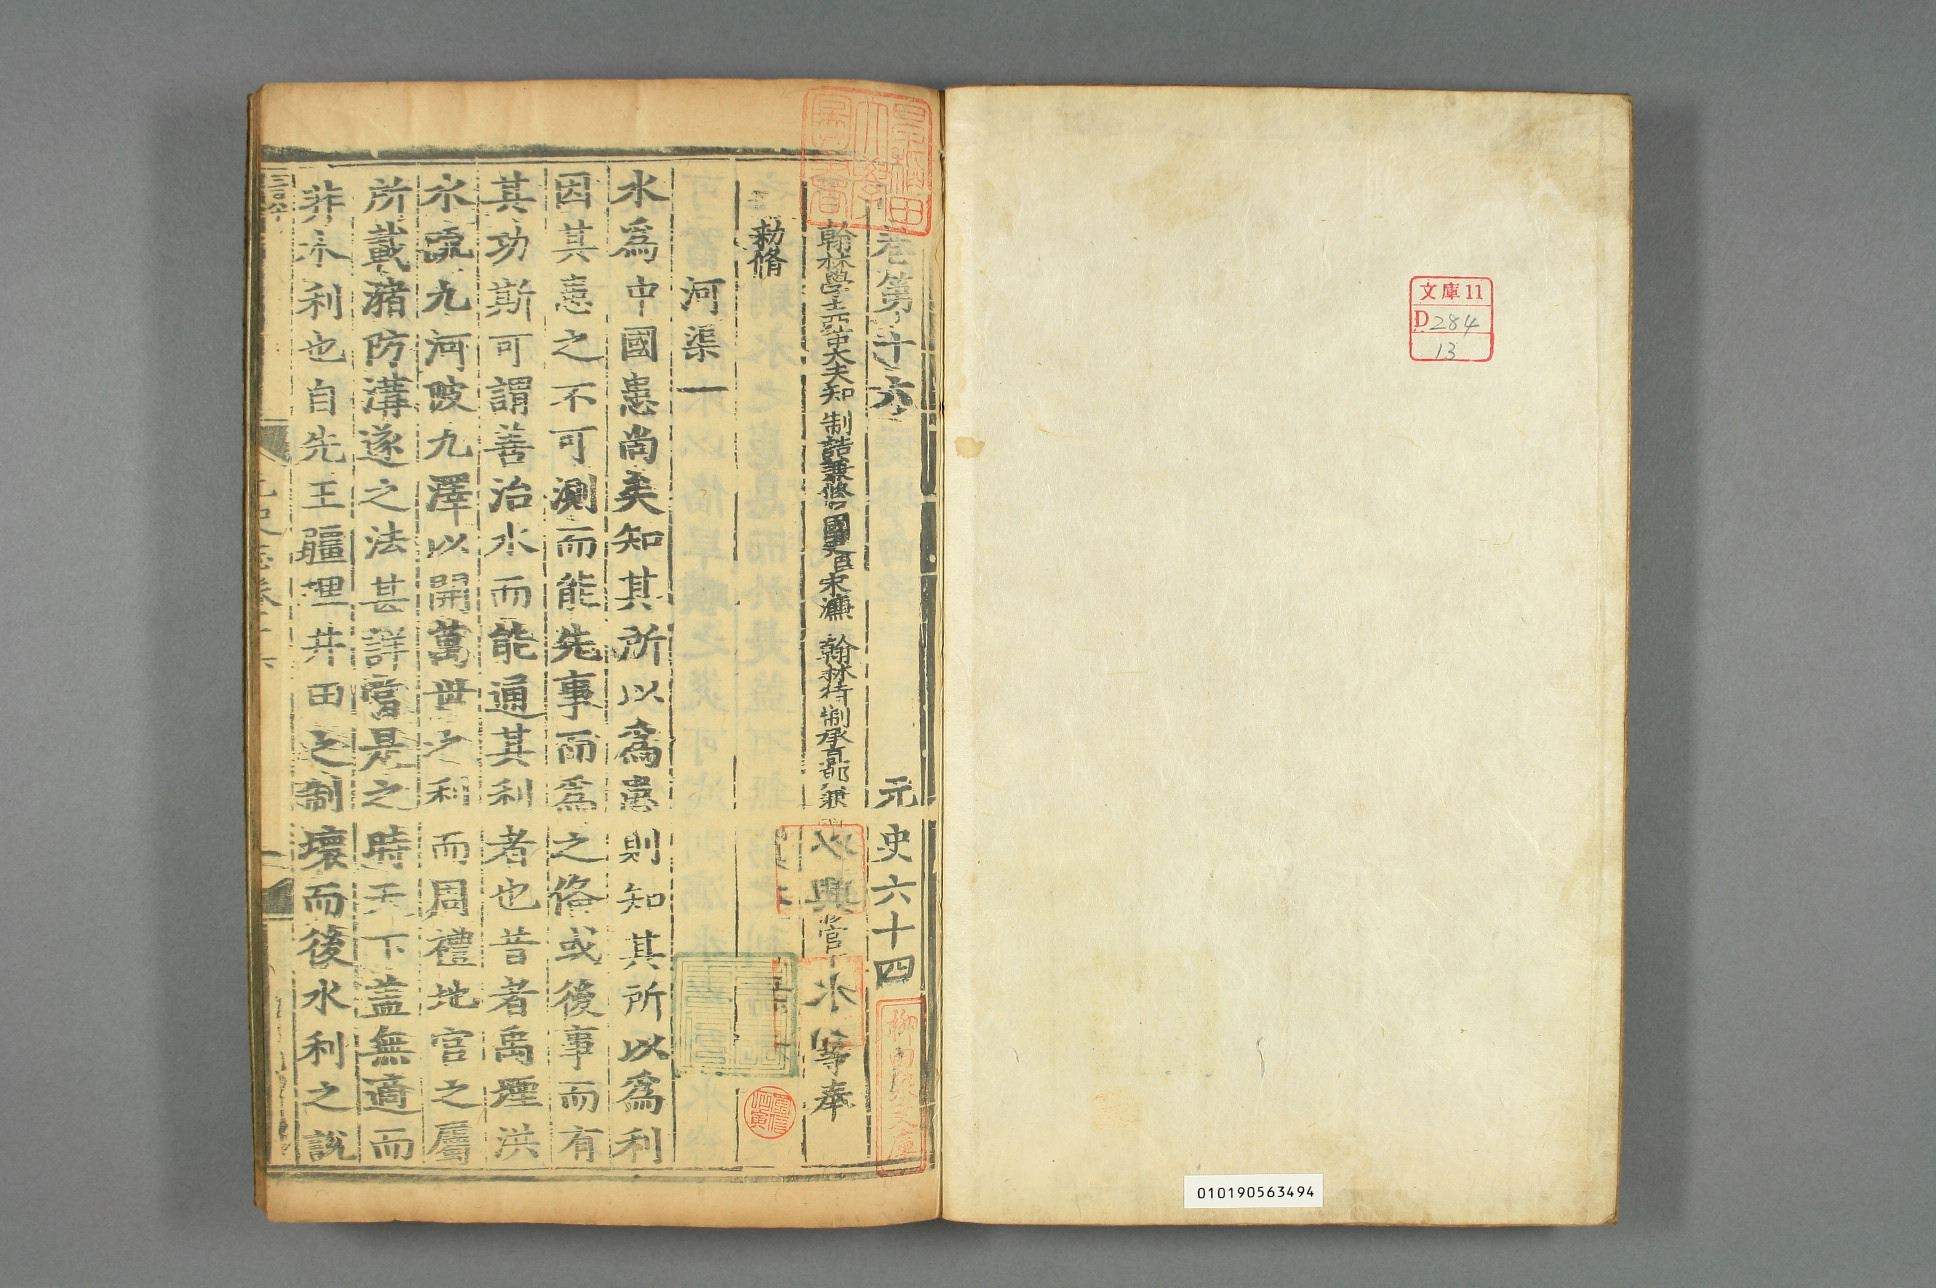 文庫11
D284
13
010190563494
卷第十六 元史六十四
翰林學士亞中大夫知 制誥兼修國史臣宋濂 翰林待制承直郎兼 官 等奉
勑脩
河渠一
水爲中國患尚矣知其所以爲患則知其所以爲利
因其患之不可測而能先事而爲之俻或後事而有
其功斯可謂善治水而能通其利者也昔者禹堙洪
水疏九河陂九澤以開萬世之利而周禮地官之屬
所載瀦防溝遂之法甚詳當是之時天下蓋無適而
非水利也自先王疆理井田之制壞而後水利之說